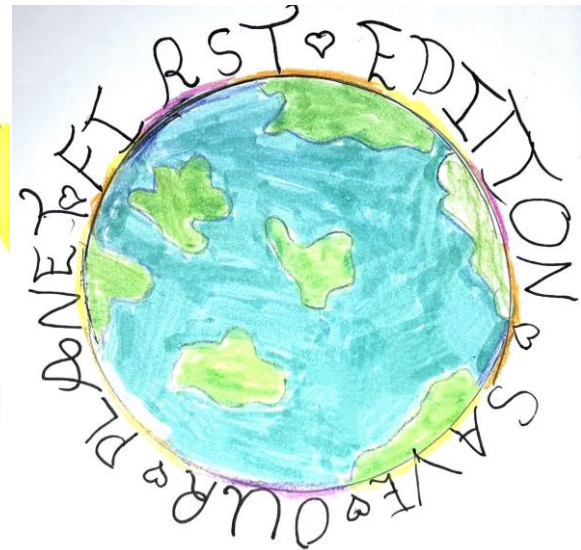 FIRST ♡ EDITION ♡ SAVE ♡ OUR ♡ PLANET ♡